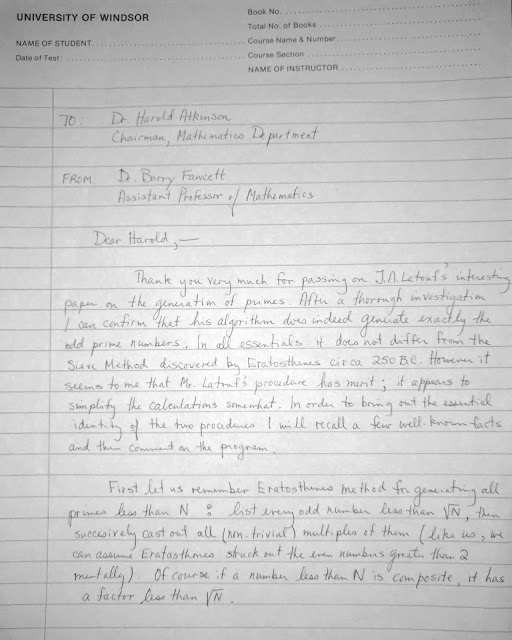 UNIVERSITY OF WINDSOR
NAME OF STUDENT
Date of Test:
Book No.
Total No. of Books
Course Name & Number
Course Section
NAME OF INSTRUCTOR
TO: Dr. Harold Atkinson
Chairman, Mathematics Department
FROM: Dr. Barry Fawcett
Assistant Professor of Mathematics
Dear Harold,—
Thank you very much for passing on J.A. Letouf's interesting
paper on the generation of primes. After a thorough investigation
I can confirm that his algorithm does indeed generate exactly the
odd prime numbers. In all essentials it does not differ from the
Sieve Method discovered by Eratosthenes circa 250 BC. However it
seems to me that Mr. Latouf's procedure has merit; it appears to
simplify the calculations somewhat. In order to bring out the essential
identity of the two procedures I will recall a few well-known facts
and then comment on the program.
First let us remember Eratosthenes method for generating all
primes less than N : list every odd number less than √N, then
succesively cast out all (non-trivial) multiples of them (like us, we
can assume Eratosthenes struck out the even numbers greater than 2
mentally). Of course if a number less than N is composite, it has
a factor less than √N.